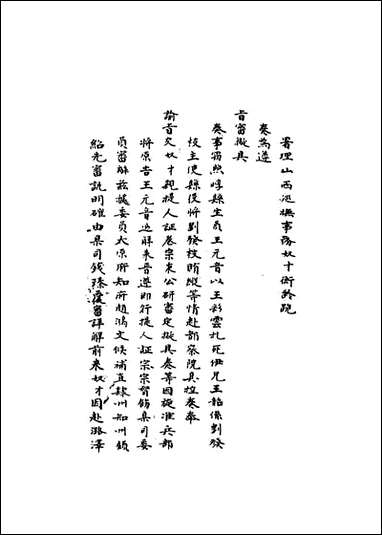 署理山西巡撫事務奴才衡齡跪
奏為遵
旨審擬具
奏事竊照崞縣生員王元音以王彩雲扎死伊兄王韶係劉發
俊主使縣役將劉發枝賄縱等情赴都察院具控奏奉
諭旨交奴才親提人証卷宗秉公研審定擬具奏等因旋准兵部
將原告王元音遞解來晉遵即行提人証宗卷飭臬司委
員審辦茲據委員太原府知府趙鴻文候補直隸州知州饒
紹先審訊明確由臬司錢臻覆審詳解前來奴才因赴潞澤